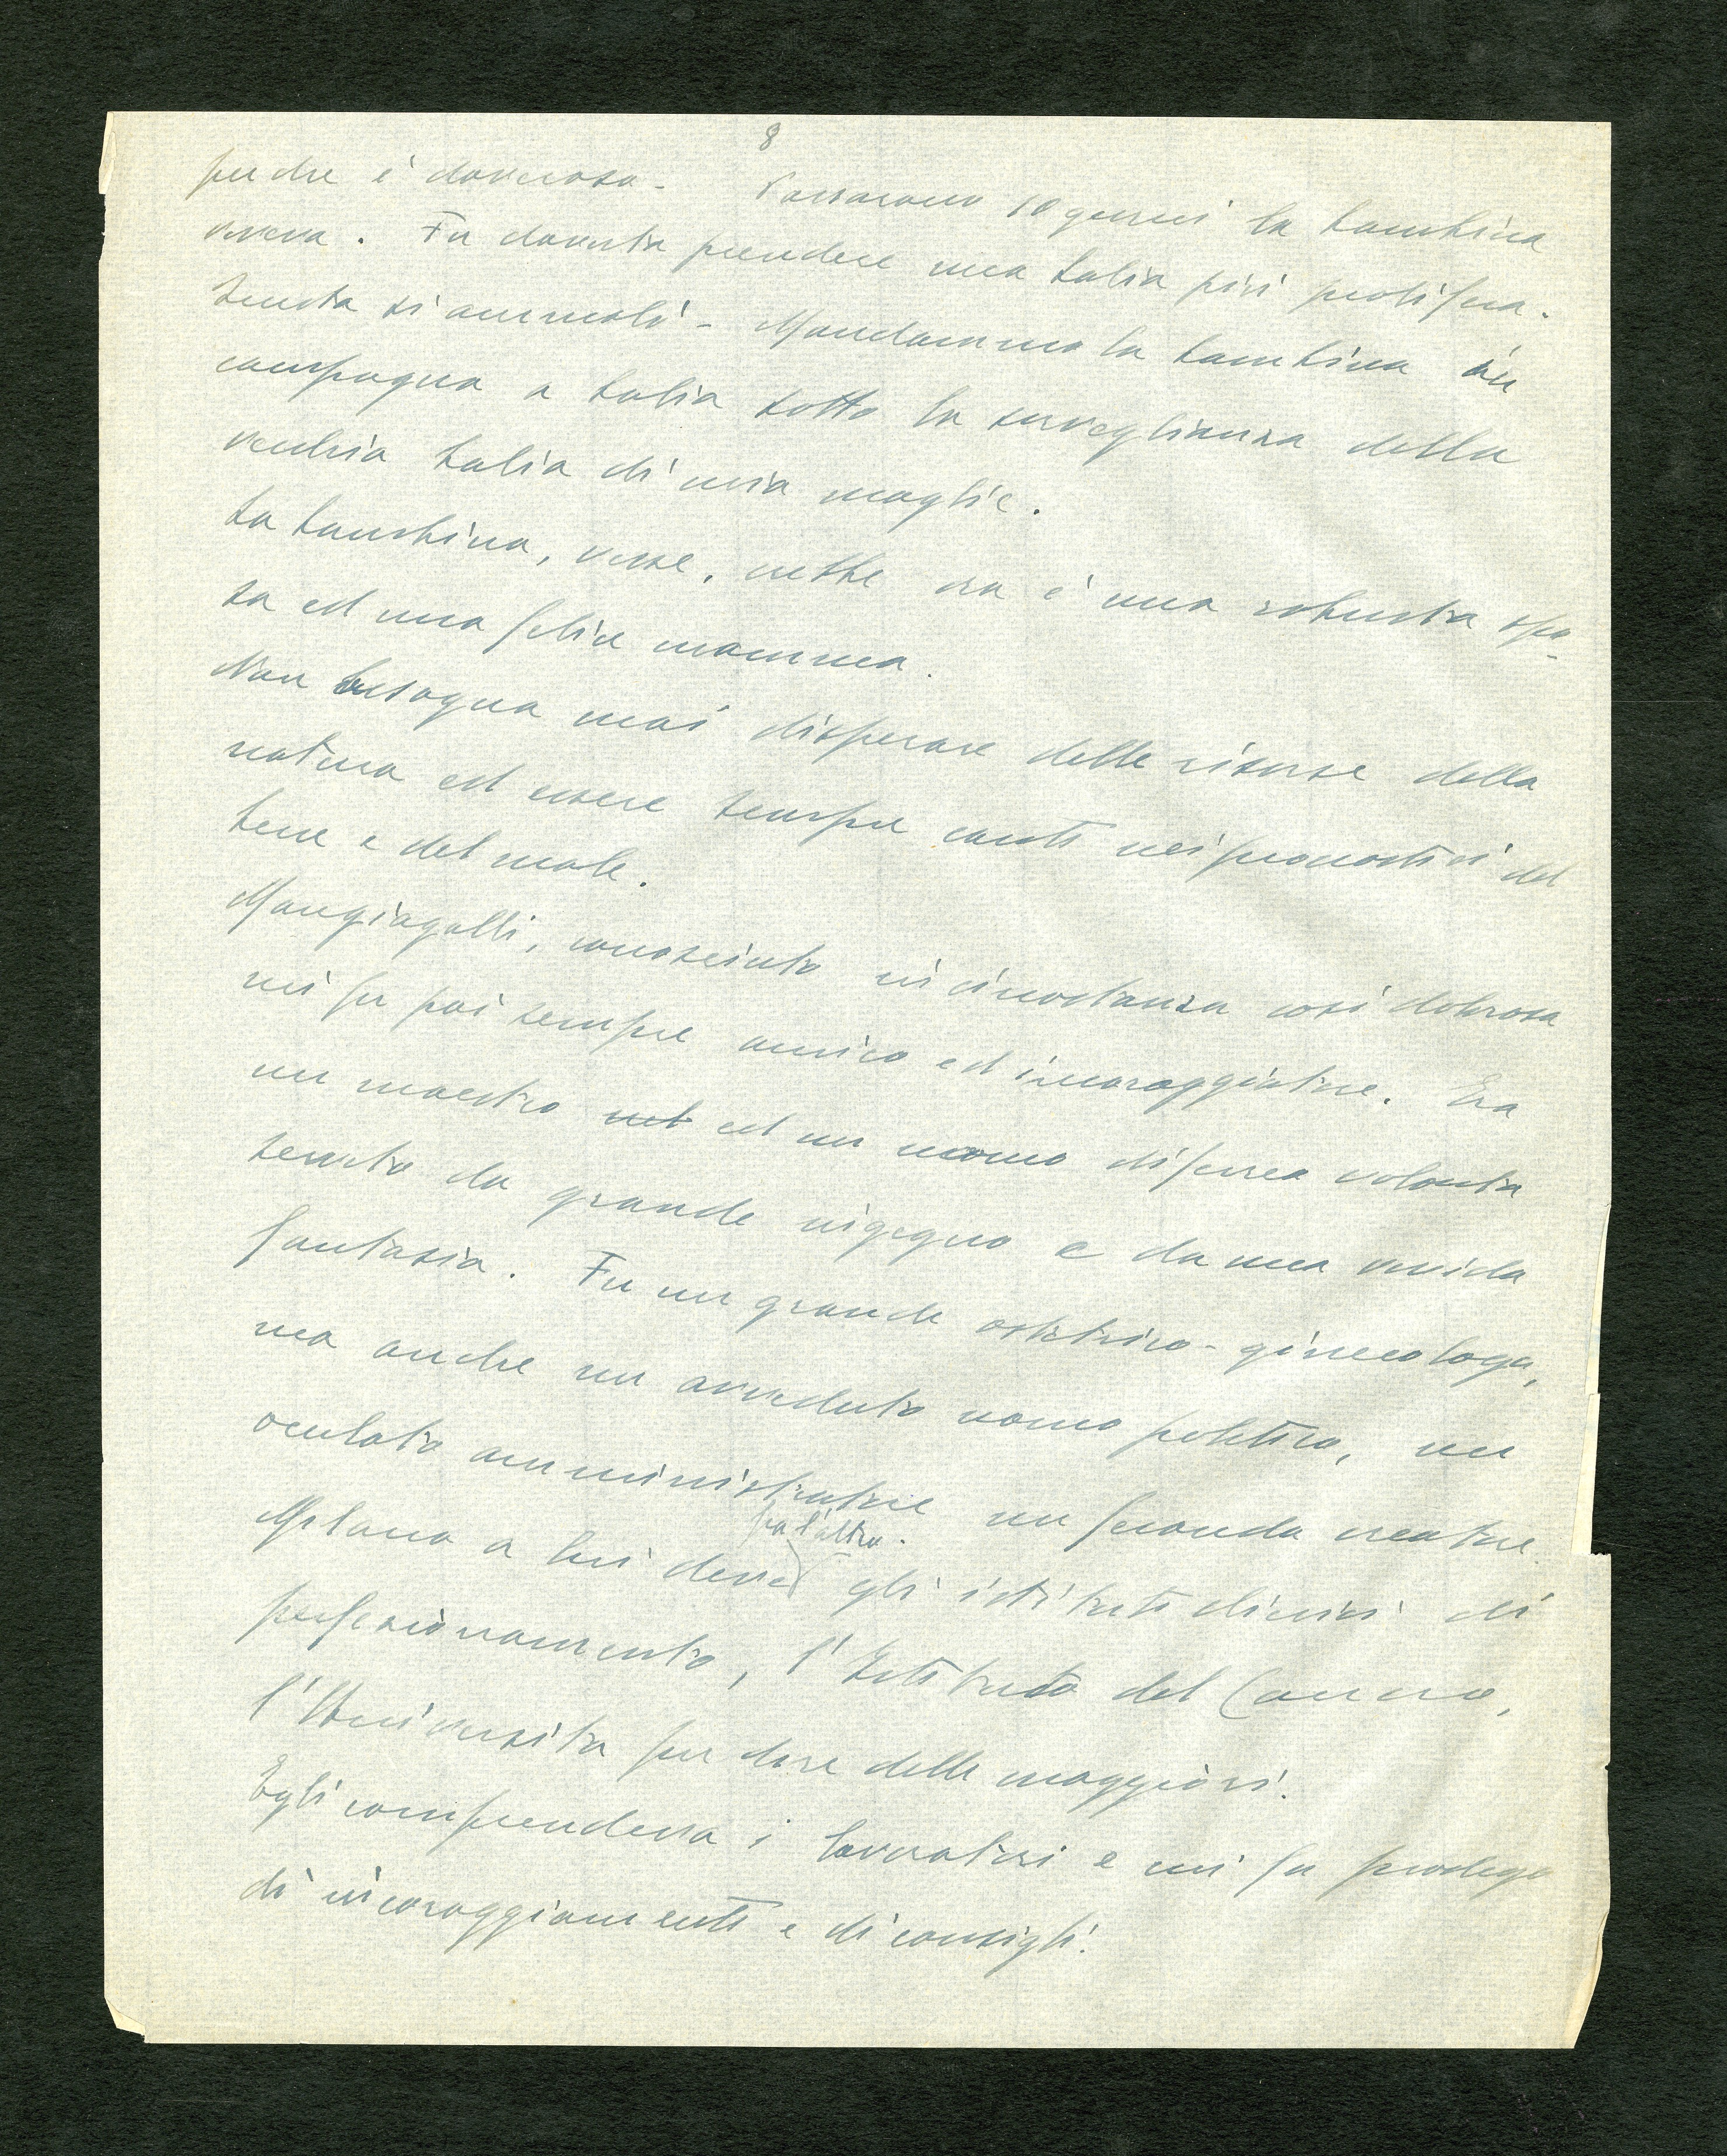 8
perchè è doverosa - Passarono 10 giorni la bambina
viveva. Fu dovuta prendere una balia più prolifera.
Questa si ammalò - Mandammo la bambina in
campagna a balia sotto la sorveglianza della
vecchia balia di mia moglie.
La bambina, visse, crebbe ora è una robusta spo-
sa ed una felice mamma.
Non bisogna mai disperare delle risorse della
natura ed essere sempre cauti nei pronostici del
bene e del male.
Mangiagalli, conosciuto in circostanza così dolorosa
mi fu poi sempre amico ed incoraggiatore. Era
un maestro ed un uomo di ferrea volontà
da grande ingegno e da una vivida
fantasia. Fu un grande ostetrico-ginecologo,
ma anche un avveduto uomo politico, un
oculato amministratore un fecondo creatore.
fra l'altro.
Milano a lui deve gli istituti clinici di
perfezionamento, l'Istituto del Cancro,
l'Università per dire delle maggiori.
Egli comprendeva i lavoratori e mi fu prodigo
di incoraggiamenti e di consigli.